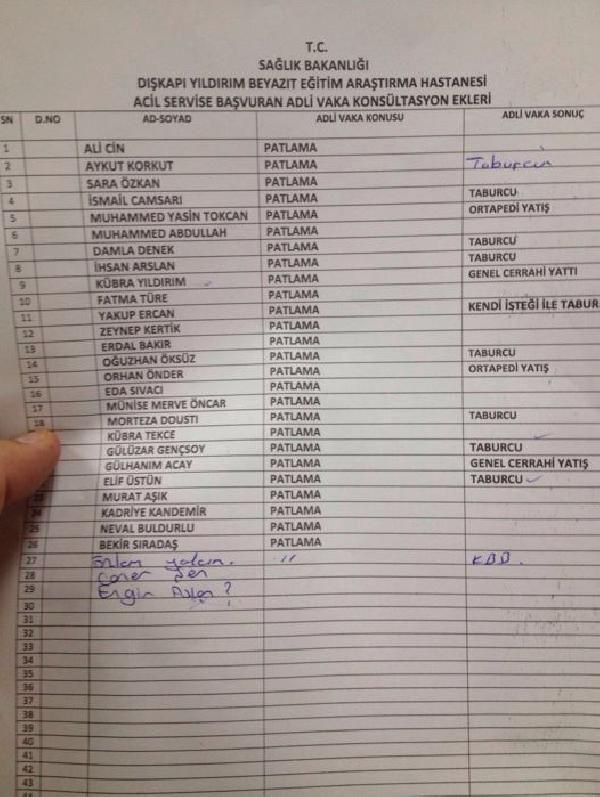 T.C.
SAĞLIK BAKANLIĞI
DIŞKAPI YILDIRIM BEYAZIT EĞİTİM ARAŞTIRMA HASTANESİ
ACİL SERVİSE BAŞVURAN ADLİ VAKA KONSÜLTASYON EKLERİ
SN D.NO AD-SOYAD ADLİ VAKA KONUSU ADLİ VAKA SONUÇ
1 ALİ CİN PATLAMA
2 AYKUT KORKUT PATLAMA Taburcu
3 SARA ÖZKAN PATLAMA
4 İSMAİL CAMSARI PATLAMA TABURCU
5 MUHAMMED YASİN TOKCAN PATLAMA ORTAPEDİ YATIŞ
6 MUHAMMED ABDULLAH PATLAMA
7 DAMLA DENEK PATLAMA TABURCU
8 İHSAN ARSLAN PATLAMA TABURCU
9 KÜBRA YILDIRIM PATLAMA GENEL CERRAHİ YATTI
10 FATMA TÜRE PATLAMA
11 YAKUP ERCAN PATLAMA KENDİ İSTEĞİ İLE TABUR
12 ZEYNEP KERTİK PATLAMA
13 ERDAL BAKIR PATLAMA
14 OĞUZHAN ÖKSÜZ PATLAMA TABURCU
15 ORHAN ÖNDER PATLAMA ORTAPEDİ YATIŞ
16 EDA SIVACI PATLAMA
17 MÜNİSE MERVE ÖNCAR PATLAMA
18 MORTEZA DOUSTI PATLAMA TABURCU
KÜBRA TEKCE PATLAMA
GÜLÜZAR GENÇSOY PATLAMA TABURCU
GÜLHANIM ACAY PATLAMA GENEL CERRAHİ YATIŞ
ELİF ÜSTÜN PATLAMA TABURCU
23 MURAT AŞIK PATLAMA
24 KADRİYE KANDEMİR PATLAMA
25 NEVAL BULDURLU PATLAMA
26 BEKİR SIRADAŞ PATLAMA
27 yalçın. " KBB.
28 Caner Şen
29 Engin Aslan?
30
31
32
33
34
35
36
37
38
39
40
41
42
43